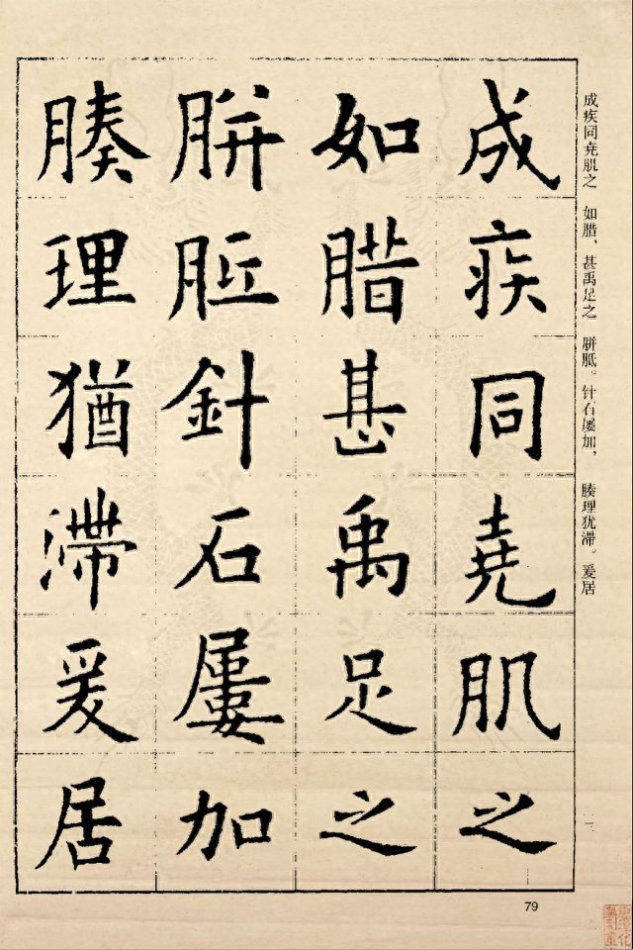 成疾同堯肌之
如腊甚禹足之
胼胝針石屢加
腠理猶滯爰居
成疾同尧肌之 如腊、甚禹足之 胼胝。针石屡加, 腠理犹滞。爰居
79